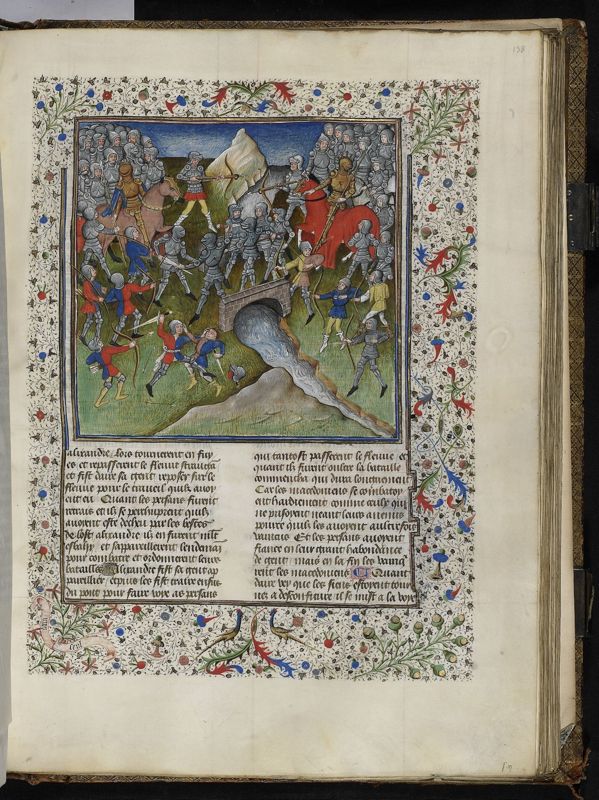 138
alixandre. Lors tournerent en fuy
es et repasserent le fleuve
et fist daire sa gent reposer sur le
fleuve pour le travail quilz avoy
ent eu Quant les persans furent
retrais et ilz se perchuprent quilz
avoient este decheu par les bestes
de lost alixandre ilz en furent mlt
esbahy et sapareillerent lendemain
pour combatre et ordonnerent leurs
batailles Alixandre fist sa gent ap
pareillier et puis les fist traire ensus
du pont pour faire voye as persans
qui tantost passerent le fleuve et
quant ilz furent oultre la bataille
commencha qui dura longuement
Car les macedoniens se combatoy
ent hardiement comme ceulx qui
ne prisoyent neant leurs anemis
pource quilz les avoyent aultrefois
vaincus Et les persans avoyent
fiance en leur grant habondance
de gent mais en la fin les vainq
rent les macedoniens Quant
daire vey que les siens estoyent tour
nez a desconfiture il se mist a la voye